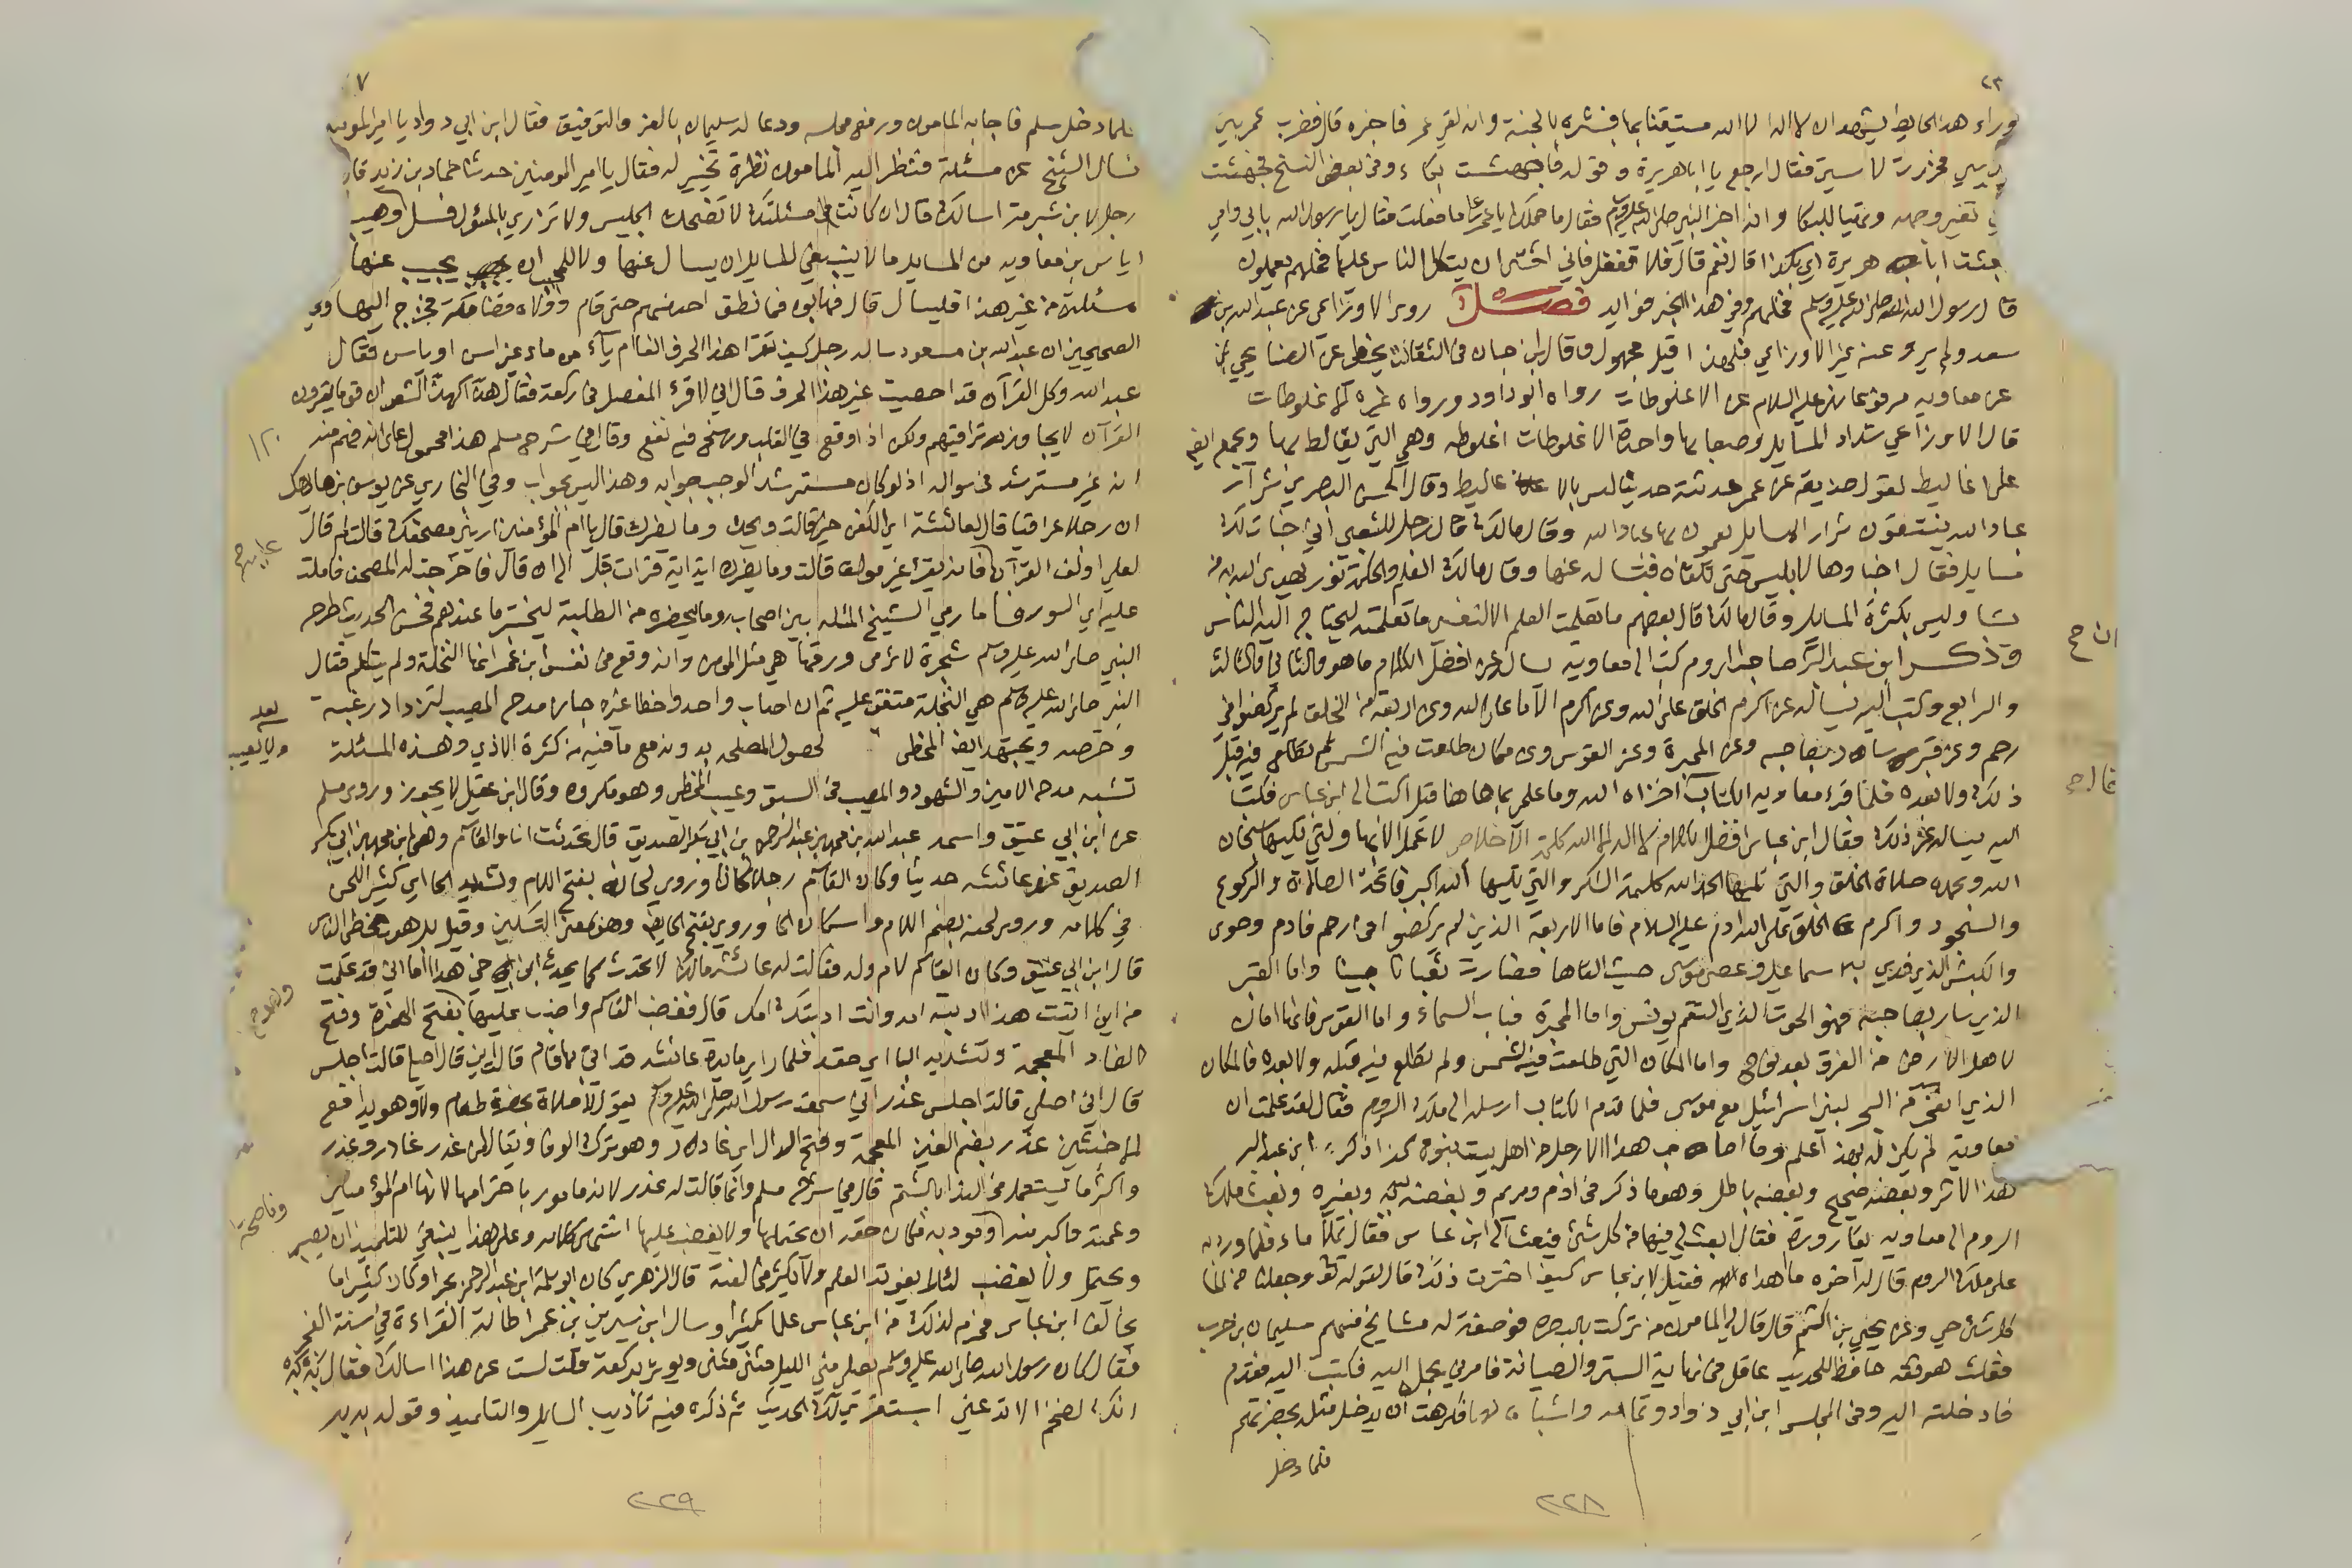 وراء هذا الحايط يشهد ان لا اله الا الله مستيقنا بها فبشره بالجنة وانه لقي عمر فاخبره قال فضرب عمر بين
ثديي فخررت لاستي فقال ارجع يا ابا هريرة وقوله فاجهشت بكاء وفي بعض النسخ فجهشت
تغير وجهه وتهيا للبكا وانه اخبر النبي صلى الله عليه وسلم فقال ما حملك يا عمر على ما فعلت فقال يا رسول الله بابي وامي
بعثت ابا هريرة اي بكذا قال نعم قال فلا تفعل فاني اخشى ان يتكل الناس عليها فخلهم يعملون
قال رسول الله صلى الله عليه وسلم فخلهم وفي هذا الخبر فوايد فصل روى الاوزاعي عن عبد الله بن
سعد ولم يرو عنه غير الاوزاعي فلهذا قيل مجهول وقال ابن حبان في الثقات يخطي عن الصنابحي
عن معاوية مرفوعا نهى عليه السلام عن الاغلوطات رواه ابو داود ورواه غيره الغلوطات
قال الاوزاعي شداد المسايل وصعابها واحدة الاغلوطات اغلوطة وهي التي يغالط بها وتجمع ايضا
على اغاليط لقول حذيفة عن عمر حدثته حديثا ليس بالاغاليط وقال الحسن البصري شرار
عباد الله ينتقون شرار المسايل يعمون بها عباد الله وقال مالك قال رجل للشعبي اني خبات لك
مسايل فقال اخباوها لابليس حتى تلقاه فتساله عنها وقال مالك العلم والحكمة نور يهدي الله به من
يشا وليس بكثرة المسايل وقال مالك قال بعضهم ما تعلمت العلم الا لنفسي ما تعلمته ليحتاج اليه الناس
وذكر ابن عبد البر صاحب الروم كتب الى معاوية يساله عن افضل الكلام ما هو والثاني والثالث
والرابع وكتب اليه يساله عن اكرم الخلق على الله وعن اكرم الاما على الله وعن اربعة من الخلق لم يركضوا في
رحم وعن قبر سار بصاحبه وعن المجرة وعن القوس وعن مكان طلعت فيه الشمس لم تطلع فيه قبل
ذلك ولا بعده فلما قرء معاوية الكتاب اخزاه الله وما علمي بما هاهنا قيل اكتب الى ابن عباس فكتب
اليه يساله عن ذلك فقال ابن عباس افضل الكلام لا اله الا الله كلمة الاخلاص لا عمل الا بها والتي تليها سبحان
الله وبحمده صلاة الخلق والتي تليها الحمد لله كلمة الشكر والتي تليها الله اكبر فاتحة الصلاة والركوع
والسجود واكرم الخلق على الله ادم عليه السلام فاما الاربعة الذين لم يركضوا في رحم فادم وحوى
والكبش الذي فدي به اسماعيل وعصى موسى حيث القاها فصارت ثعبانا مبينا واما القبر
الذي سار بصاحبه فهو الحوت الذي التقم يونس واما المجرة فباب السماء واما القوس فانها امان
لاهل الارض من الغرق بعد نوح واما المكان التي طلعت فيه الشمس ولم تطلع فيه قبله ولا بعده فالمكان
الذي انفجر من البحر لبني اسرائيل مع موسى فلما قدم الكتاب ارسله الى ملك الروم فقال لقد علمت ان
معاوية لم يكن له بهذا علم وما اصاب هذا الا رجل من اهل بيت نبوة كذا ذكره ابن عبد البر
هذا الاثر وبعضه صحيح وبعضه باطل وهو ما ذكر في ادم ومريم وبعضه فيه وبغيره وبعث ملك
الروم الى معاوية بقارورة فقال ابعث لي فيها من كل شئ فبعث الى ابن عباس فقال تملأ ماء فلما ورد به
على ملك الروم قال له اخوه ما اهداه فقيل لابن عباس كيف اخترت ذلك قال لقوله تعالى وجعلنا من الما
كل شئ حي وعن يحيى بن اكثم قال قال لي المامون من تركت بالبصرة فوصفت له مشايخ منهم سليمان بن حرب
فقلت هو ثقة حافظ للحديث عاقل في نهاية الستر والصيانة فامرني بحمله اليه فكتبت اليه فقدم
فادخلته اليه وفي المجلس ابن ابي دواد وثمامة واشباه لهما فكرهت ان يدخل مثله بحضرتهم
فلما دخل
ان ح
٢٢٨
فلما دخل سلم فاجابه المامون ورفع مجلسه ودعا له سليمان بالعز والتوفيق فقال ابن ابي دواد يا امير المومنين
نسال الشيخ عن مسئلة فنظر اليه المامون نظرة تخيير له فقال يا امير المومنين حدثنا حماد بن زيد قال
رجل لابن شبرمة اسالك قال ان كانت مسئلتك لا تضحك الجليس ولا تزري بالمسؤل فسل وهيب
اياس بن معاوية من المسايل ما لا ينبغي للسايل ان يسال عنها ولا للمجيب ان يجيب عنها
مسئلة من غير هذا فليسال قال فهابوه فما نطق احد منهم حتى قام وولاه قضا مكة فخرج اليها وفي
الصحيحين ان عبد الله بن مسعود ساله رجل كيف تقرا هذا الحرف الفا ام ياء من ماء غير اسن او ياسن فقال
عبد الله وكل القرآن قد احصيت غير هذا الحرف قال اني لاقرء المفصل في ركعة فقال هذا كهذ الشعر ان قوما يقرون
القرآن لا يجاوز تراقيهم ولكن اذا وقع في القلب ورسخ فيه نفع وقال في شرح مسلم هذا محمول على انه فهم منه
انه غير مسترشد في سواله اذ لو كان مسترشدا لوجب جوابه وهذا ليس بجواب وفي البخاري عن يوسف بن ماهك
ان رجلا عراقيا قال لعائشة اي الكفن خير قالت ويحك وما يضرك قال يا ام المؤمنين اريني مصحفك قالت لم قال
لعلي اولف القرآن فانه يقرء غير مولف قالت وما يضرك اية اية قرات قبل الى ان قال فاخرجت له المصحف فاملت
عليه اي السور فاما رمي الشيخ المسئلة بين اصحابه وما يحضره من الطلبة ليختبر ما عندهم فحسن لحديث طرح
النبي صلى الله عليه وسلم شجرة لا يرمى ورقها هي مثل المومن وانه وقع في نفس ابن عمر انها النخلة ولم يتكلم فقال
النبي صلى الله عليه وسلم هي النخلة متفق عليه ثم ان اصاب واحد واخطا غيره جاز مدح المصيب لتزداد رغبته
وحرصه ويجتهد ايضا المخطي لحصول المصلحة به ونفع ما فيه من كثرة الاذي وهذه المسئلة
تشبه مدح الامين والشهود والمصيب في السبق وعيب المخطي وهو مكروه وقال ابن عقيل لا يجوز وروى مسلم
عن ابن ابي عتيق واسمه عبد الله بن محمد بن عبد الرحمن بن ابي بكر الصديق قال تحدثت انا والقاسم وهو ابن محمد بن ابي بكر
الصديق عند عائشة حديثا وكان القاسم رجلا لحانا وروي لحانة بفتح اللام وتشديد الحا اي كثير اللحن
في كلامه وروي لحنة بضم اللام واسكان الحا وروي بفتح الحا ايضا وهو بمعنى التسكين وقيل بل هو يخطي الناس
قال ابن ابي عتيق وكان القاسم لام ولد فقالت له عائشة مالك لا تحدث كما يحدث ابن اخي هذا اما اني قد علمت
من اين اتيت هذا ادبته امه وانت ادبتك امك قال فغضب القاسم واضب عليها بفتح الهمزة وفتح
الضاد المعجمة وتشديد البا اي حقد فلما راى مايدة عائشة قد اتي بها قام قالت اين قال اصلي قالت اجلس
قال اني اصلي قالت اجلس غدر اني سمعت رسول الله صلى الله عليه وسلم يقول لا صلاة بحضرة طعام ولا وهو يدافع
الاخبثين غدر بضم الغين المعجمة وفتح الدال اي غادر وهو ترك الوفا ويقال لمن غدر غادر وغدر
واكثر ما يستعمل في الندا بالشتم قال في شرح مسلم وانما قالت له غدر لانه مامور باحترامها لانها ام المؤمنين
وعمته واكبر منه ومودبة فكان حقه ان يحتملها ولا يغضب عليها انتهى كلامه وعلى هذا ينبغي للتلميذ ان يصبر
ويحتمل ولا يغضب لئلا يفوته العلم ولا يكثر مخالفة قال الزهري كان ابو سلمة ابن عبد الرحمن بحرا وكان كثيرا ما
يخالف ابن عباس فحرم لذلك من ابن عباس علما كثيرا وسال ابن سيرين بن عمر اطالة القراءة في سنة الفجر
فقال كان رسول الله صلى الله عليه وسلم يصلي من الليل مثنى مثنى ويوتر بركعة قلت لست عن هذا اسالك فقال به به
انك لضخم الا تدعني استقري لك الحديث ثم ذكره فيه تاديب السايل والتلميذ وقوله به به
بعد
٢٢٩